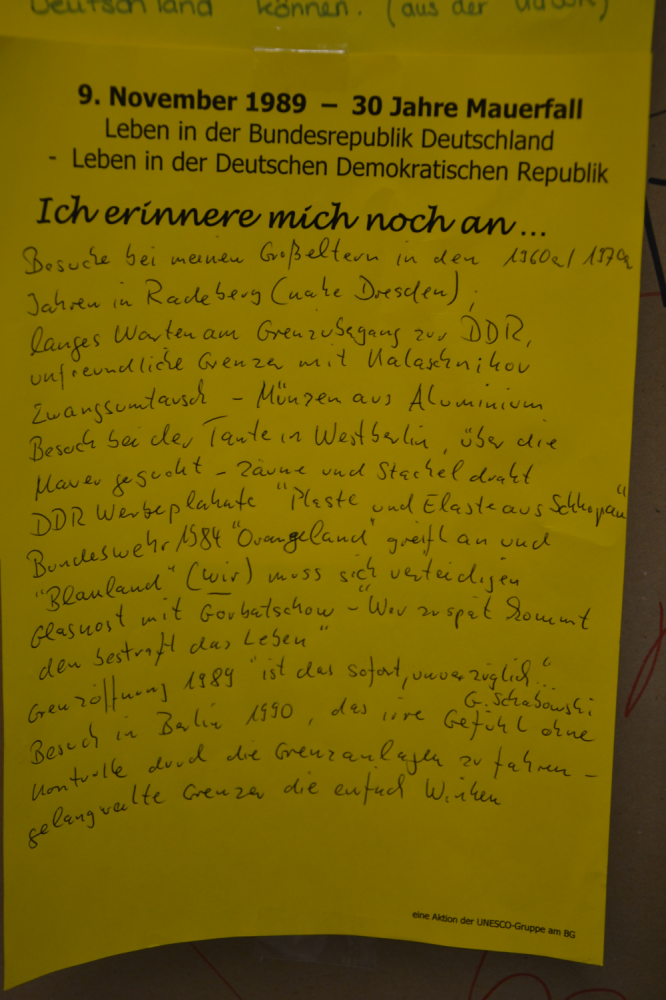 Deutschland können. (aus der
9. November 1989 – 30 Jahre Mauerfall
Leben in der Bundesrepublik Deutschland
- Leben in der Deutschen Demokratischen Republik
Ich erinnere mich noch an...
Besuche bei meinen Großeltern in den 1960er/1970er
Jahren in Radeberg (nahe Dresden),
langes Warten am Grenzübegang zur DDR,
unfreundliche Grenzer mit Kalaschnikov
Zwangsumtausch - Münzen aus Aluminium
Besuch bei der Tante in Westberlin, über die
Mauer geguckt - Zäune und Stacheldraht
DDR Werbeplakate "Plaste und Elaste aus Schkopau"
Bundeswehr 1984 "Orangeland" greift an und
"Blauland" (wir) muss sich verteidigen
Glasnost mit Gorbatschow - "Wer zu spät kommt
den bestraft das Leben"
Grenzöffnung 1989 "ist das sofort, unverzüglich"...
G. Schabowski
Besuch in Berlin 1990, das irre Gefühl ohne
Kontrolle durch die Grenzanlagen zu fahren -
gelangweilte Grenzer die einfach Winken
eine Aktion der UNESCO-Gruppe am BG